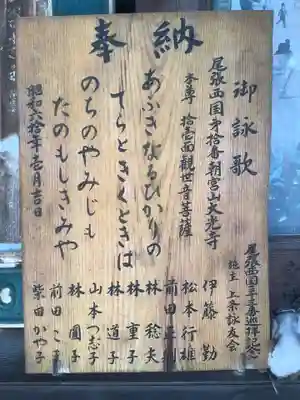 奉納
御詠歌
尾張西国第拾番朝宮山大光寺
本尊 拾壱面観世音菩薩
あふぎなるひかりの
てらときくときは
のちのやみじも
たのもしきみや
昭和六拾年壱月吉日
尾張西国三十三番巡拝記念
施主 上条詠友会
伊藤勤
松本行雄
前田正則
林稔夫
林重子
林道子
山本つぎ子
林園子
前田こま
柴田かや子